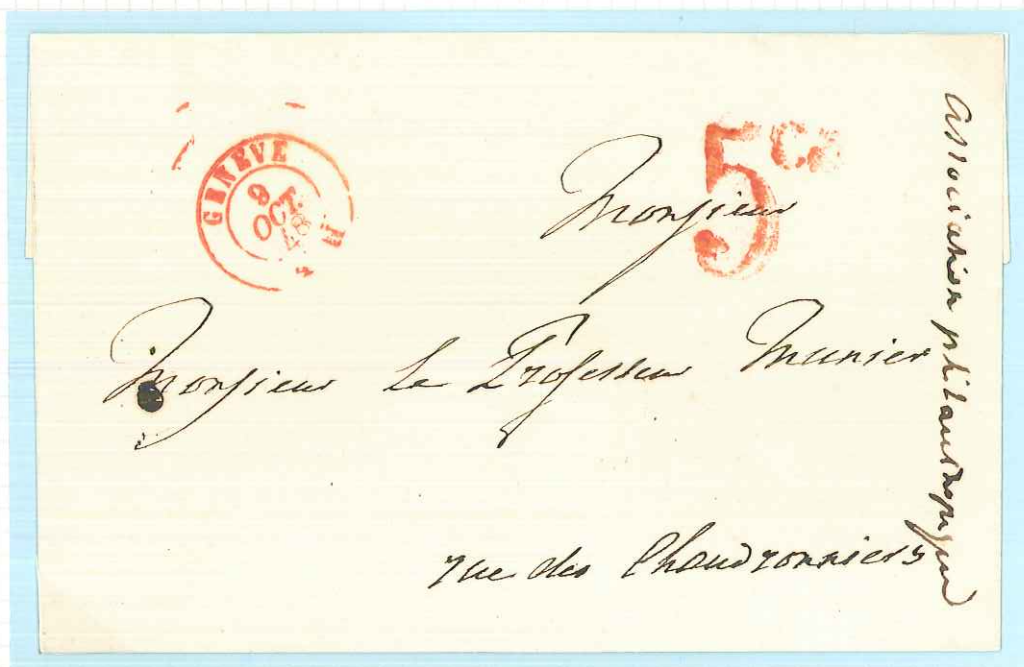 GENÈVE
9
OCT.
48
4 M
5 Cs
Monsieur
Monsieur Le Professeur Munier
rue des Chaudronniers
association philantropique